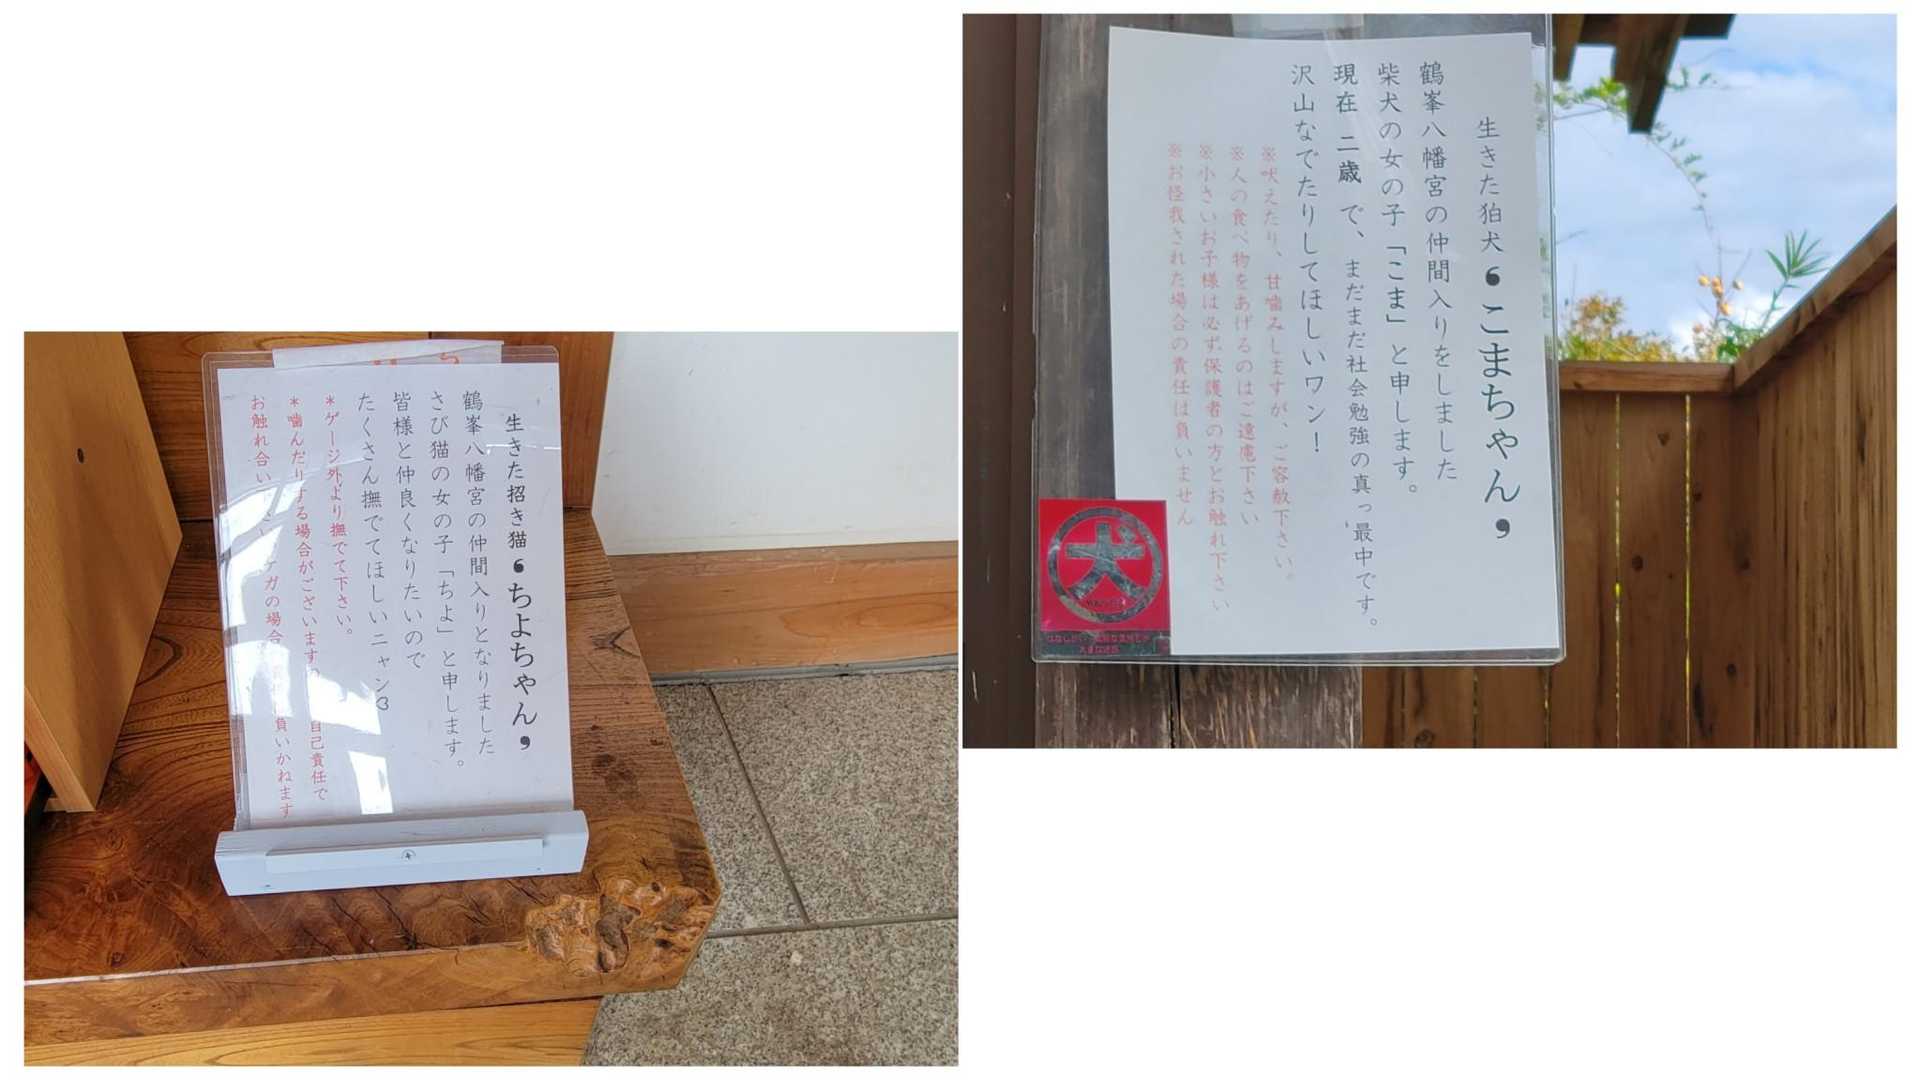 生きた招き猫❛ちよちゃん❜
鶴峯八幡宮の仲間入りとなりました
さび猫の女の子「ちよ」と申します。
皆様と仲良くなりたいので
たくさん撫でてほしいニャン3
*ゲージ外より撫でて下さい。
*噛んだりする場合がございます 自己責任で
お触れ合い ガの場合 負いかねます
生きた狛犬❛こまちゃん❜
鶴峯八幡宮の仲間入りをしました
柴犬の女の子「こま」と申します。
現在 二歳 で、まだまだ社会勉強の真っ最中です。
沢山なでたりしてほしいワン!
※吠えたり、甘噛みしますが、ご容赦下さい。
※人の食べ物をあげるのはご遠慮下さい
※小さいお子様は必ず保護者の方とお触れ下さい
※お怪我された場合の責任は負いません
犬